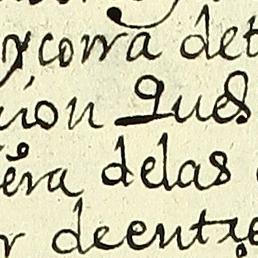 y corra det
cion Ques
era delas
r deentre